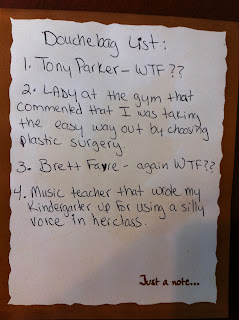 Douchebag List:
1. Tony Parker - WTF??
2. LADY at the gym that
commented that I was taking
the easy way out by choosing
plastic surgery.
3. Brett Favre - again WTF??
4. Music teacher that wrote my
Kindergarter up for using a silly
voice in her class.
Just a note...